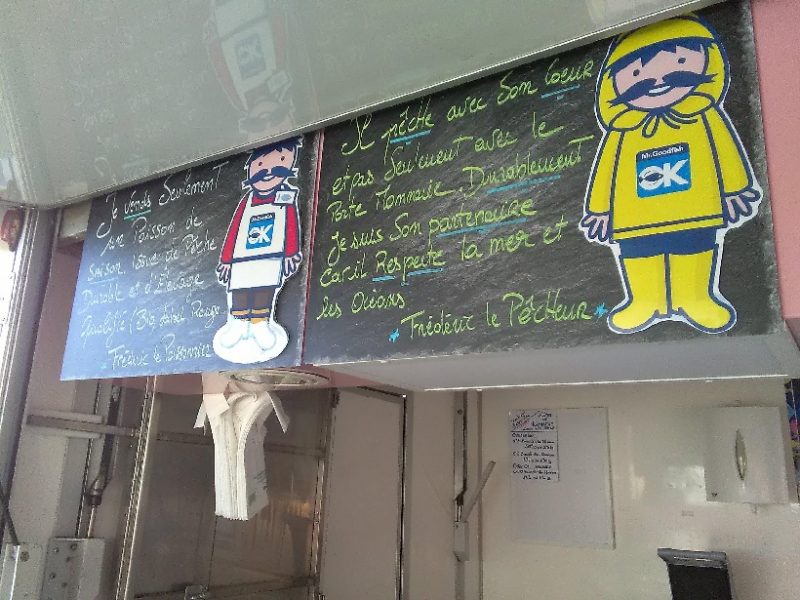 Je vends Seulement
un Poisson de
Saison issue de Pêche
Durable et d'Elevage
Qualifié (Bio, Label Rouge
Frédéric le Poissonnier
OK
Il pêche avec Son Coeur
et pas Seulement avec le
Porte Monnaie. Durablement
Je suis Son partenaire
Car il Respecte la mer et
les Océans
Frédéric le Pêcheur
Mr.Goodfish
OK